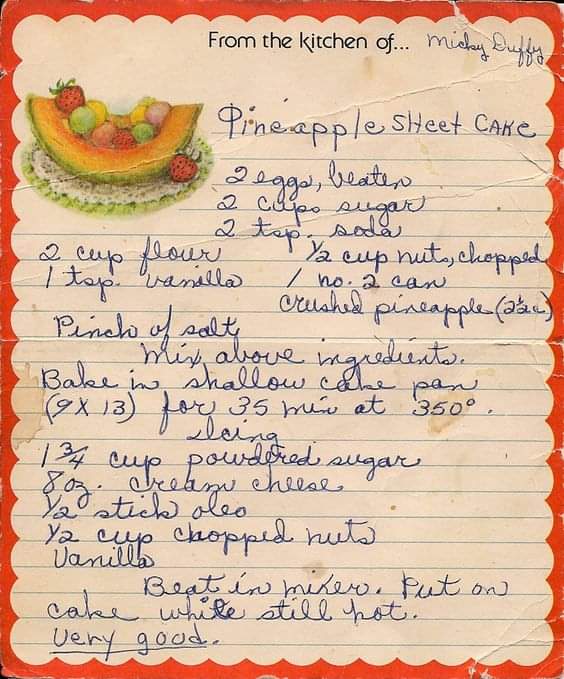 From the kitchen of... Micky Duffy
Pineapple SHeet CAKe
2 eggs, beaten
2 cups sugar
2 tsp. soda
2 cup flour 1/2 cup nuts, chopped
1 tsp. vanilla 1 no. 2 can
crushed pineapple (2½c)
Pinch of salt
Mix above ingredients.
Bake in shallow cake pan
(9X13) for 35 min at 350°.
Icing
1 3/4 cup powdered sugar
8 oz. cream cheese
1/2 stick oleo
1/2 cup chopped nuts
Vanilla
Beat in mixer. Put on
cake while still hot.
Very good.